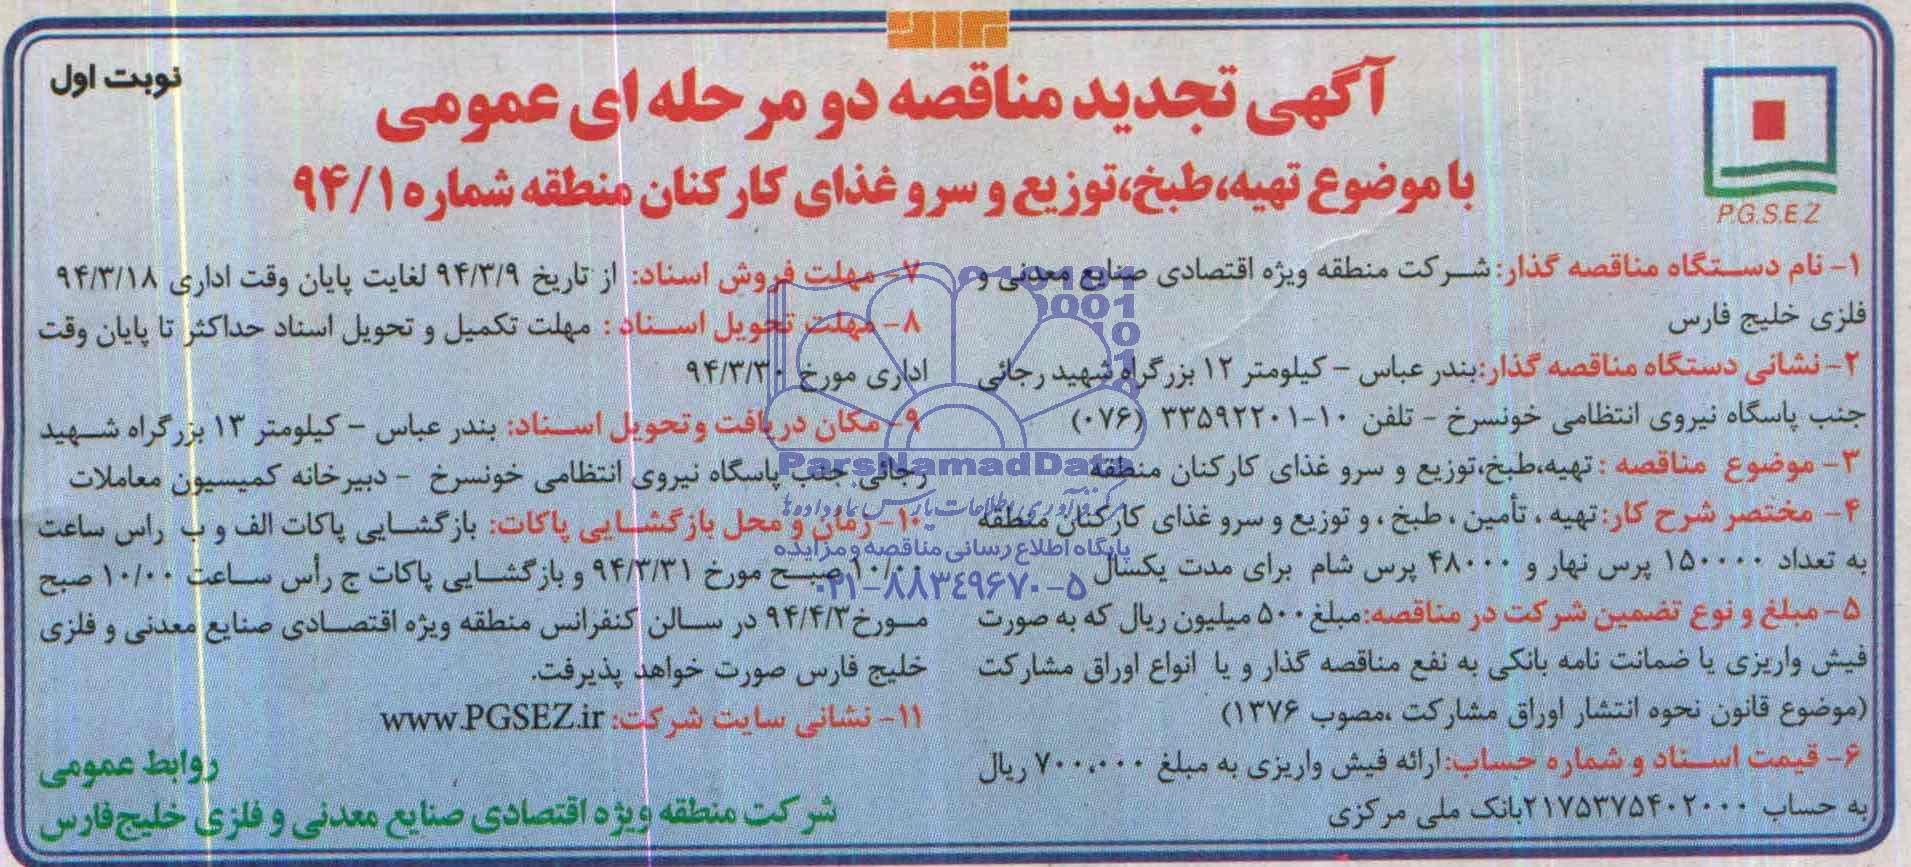 نوبت اول
آگهی تجدید مناقصه دو مرحله ای عمومی
با موضوع تهیه،طبخ،توزیع و سرو غذای کارکنان منطقه شماره ۹۴/۱
P.G.S.E.Z
۱- نام دستگاه مناقصه گذار: شرکت منطقه ویژه اقتصادی صنایع معدنی و
فلزی خلیج فارس
۲- نشانی دستگاه مناقصه گذار:بندر عباس - کیلومتر ۱۲ بزرگراه شهید رجائی
جنب پاسگاه نیروی انتظامی خونسرخ - تلفن ۱۰-۳۳۵۹۲۲۰۱ (۰۷۶)
۳- موضوع مناقصه : تهیه،طبخ،توزیع و سرو غذای کارکنان منطقه
۴- مختصر شرح کار: تهیه ، تأمین ، طبخ ، و توزیع و سرو غذای کارکنان منطقه
به تعداد ۱۵۰۰۰۰ پرس نهار و ۴۸۰۰۰ پرس شام برای مدت یکسال
۵- مبلغ و نوع تضمین شرکت در مناقصه:مبلغ ۵۰۰ میلیون ریال که به صورت
فیش واریزی یا ضمانت نامه بانکی به نفع مناقصه گذار و یا انواع اوراق مشارکت
(موضوع قانون نحوه انتشار اوراق مشارکت ،مصوب ۱۳۷۶)
۶- قیمت اسناد و شماره حساب:ارائه فیش واریزی به مبلغ ۷۰۰،۰۰۰ ریال
به حساب ۲۱۷۵۳۷۵۴۰۲۰۰۰بانک ملی مرکزی
۷- مهلت فروش اسناد: از تاریخ ۹۴/۳/۹ لغایت پایان وقت اداری ۹۴/۳/۱۸
۸- مهلت تحویل اسناد : مهلت تکمیل و تحویل اسناد حداکثر تا پایان وقت
اداری مورخ ۹۴/۳/۳۰
۹- مکان دریافت و تحویل اسناد: بندر عباس - کیلومتر ۱۳ بزرگراه شهید
رجائی جنب پاسگاه نیروی انتظامی خونسرخ - دبیرخانه کمیسیون معاملات
۱۰- زمان و محل بازگشایی پاکات: بازگشایی پاکات الف و ب راس ساعت
۱۰/۰۰ صبح مورخ ۹۴/۳/۳۱ و بازگشایی پاکات ج رأس ساعت ۱۰/۰۰ صبح
مورخ۹۴/۴/۳ در سالن کنفرانس منطقه ویژه اقتصادی صنایع معدنی و فلزی
خلیج فارس صورت خواهد پذیرفت.
۱۱- نشانی سایت شرکت: www.PGSEZ.ir
روابط عمومی
شرکت منطقه ویژه اقتصادی صنایع معدنی و فلزی خلیج فارس
ParsNamadData
مرکز فرآوری اطلاعات پارس نماد داده ها
پایگاه اطلاع رسانی مناقصه و مزایده
۰۲۱-۸۸۳۴۹۶۷۰-۵